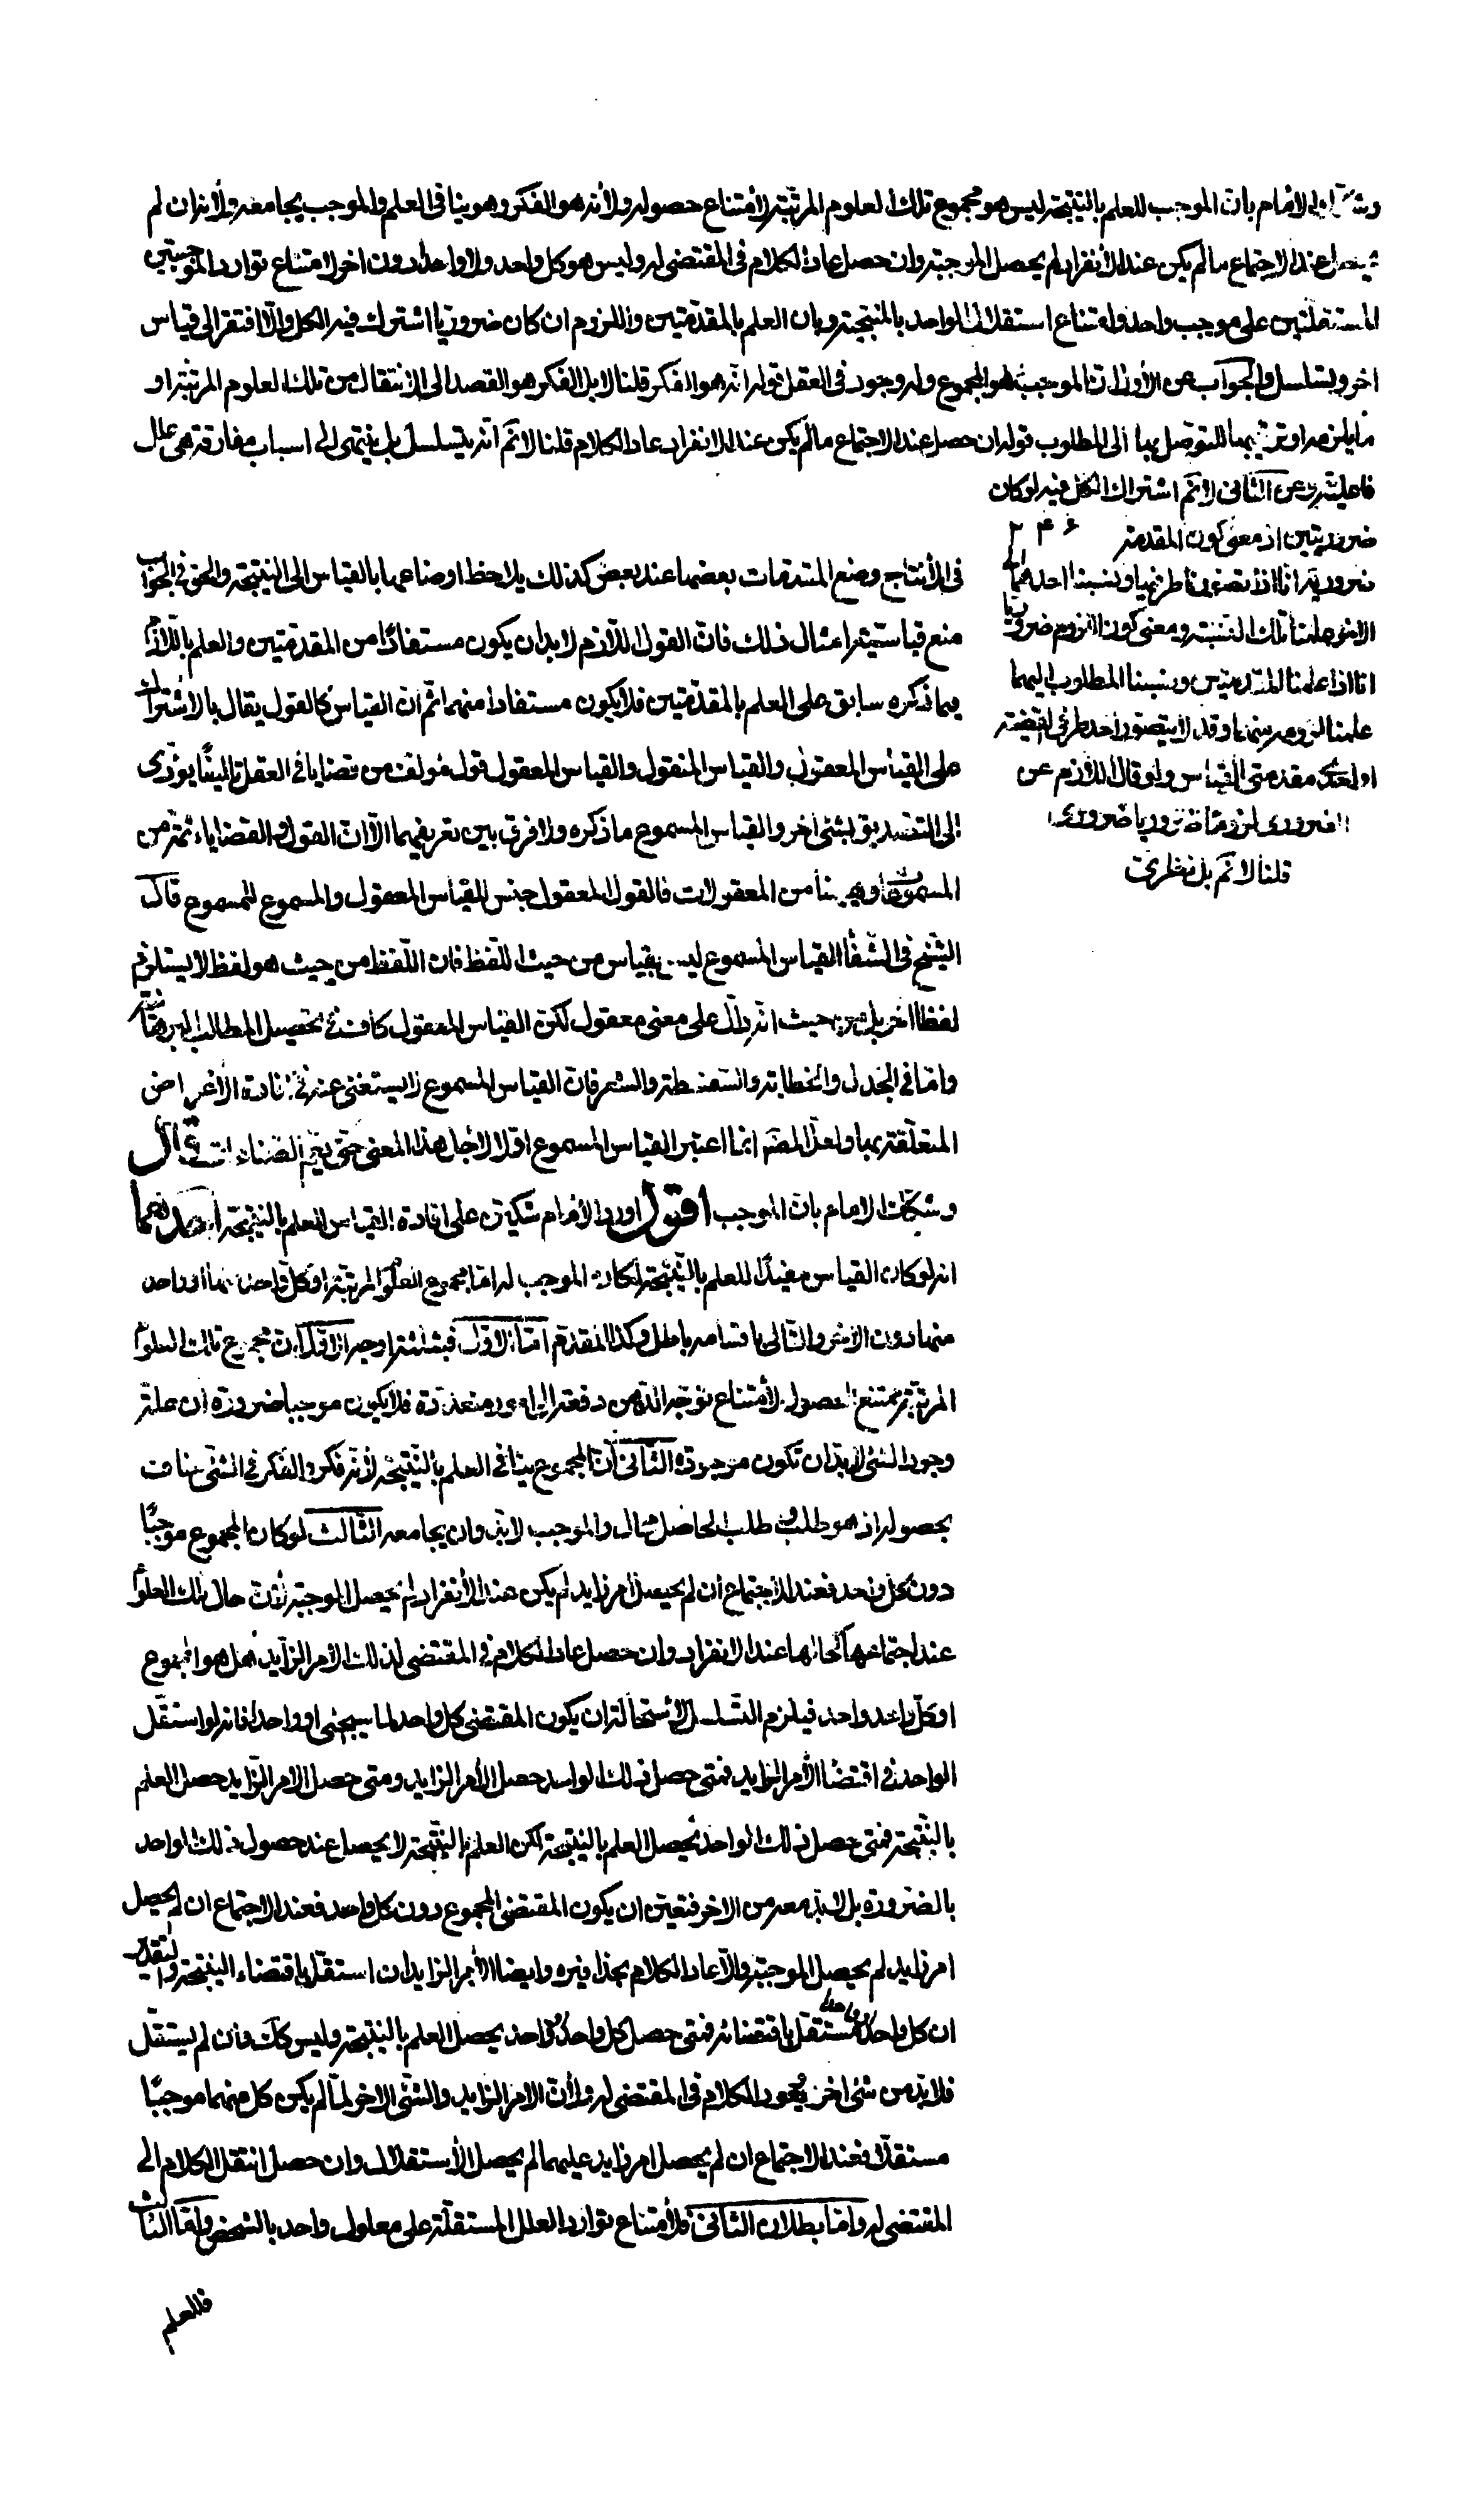 وشكك الامام بان الموجب للعلم بالنتيجة ليس هو مجموع تلك العلوم المرتبة لامتناع حصوله ولأنه هو الفكر وهو ينافى العلم والموجب يجامعه ولانه ان لم
يحصل عند الاجتماع ما لم يكن عند الأنفراد لم يحصل الموجبية وان حصل عاد الكلام فى المقتضى له وليس هو كل واحد ولا واحدا دون اخر لامتناع توارد الموجبتين
المستقلتين على موجب واحد وامتناع استقلال الواحد بالنتيجة وبان العلم بالمقدمتين واللزوم ان كان ضروريا اشترك فيه الكل والا افتقر الى قياس
اخر ويتسلسل والجواب عن الأول ان الموجب هو المجموع وله وجود فى العقل قوله انه هو الفكر قلنا لا بل الفكر هو القصد الى الانتقال من تلك العلوم المرتبة او
ما يلزمه او ترتيبها للتوصل بها الى المطلوب قوله ان حصل عند الاجتماع ما لم يكن عند الانفراد عاد الكلام قلنا لانم انه يتسلسل بل ينتهى الى اسباب مفارقة هى علل
فاعلية وعن الثانى لانم اشتراك الكل فيه لو كان
ضروريتين اذ معنى كون المقدمة
ضرورية انا اذا تصورنا طرفيها ونسبنا احدهما الى
الاخر علمنا تلك النسبة ومعنى كون اللزوم ضروريا
انا اذا علمنا المقدمتين ونسبنا المطلوب اليهما
علمنا لزومه منهما وقد لا يتصور احد طرفى القضية
او احدى مقدمتى القياس ولو قال اللازم عن
الضرورى لزوما ضروريا ضرورى
قلنا لانم بل نظرى
٢٤٤
فى الأنتاج وضع المقدمات بعضها عند بعض كذلك يلاحظ اوضاعها بالقياس الى النتيجة والحق فى الجواب
منع قياسية امثال ذلك فان القول اللازم لابد ان يكون مستفادا من المقدمتين والعلم باللازم
فيما ذكره سابق على العلم بالمقدمتين فلا يكون مستفادا منهما ثم ان القياس كالقول يقال بالاشتراك
على القياس المعقول والقياس المنقول والقياس المعقول قول مؤلف من قضايا فى العقل تاليفا يؤدى
الى التصديق بشئ اخر والقياس المسموع ما ذكره ولا فرق بين تعريفيهما الا ان القول والقضايا ثمة من
المسموعات وههنا من المعقولات فالقول المعقول جنس للقياس المعقول والمسموع للمسموع قال
الشيخ فى الشفا القياس المسموع ليس بقياس من حيث اللفظ فان اللفظ من حيث هو لفظ لا يستلزم
لفظا اخر بل من حيث انه دال على معنى معقول لكن القياس المعقول كاف فى تحصيل المطالب البرهانية
واما فى الجدل والخطابة والسفسطة والشعر فان القياس المسموع لا يستغنى عنه فى افادة الأغراض
المتعلقة بها ولعل المصـ انما اعتبر القياس المسموع اولا لأجل هذا المعنى حتى يعم الصناعات قال
وشكك الامام بان الموجب اقول اورد الأمام شكين على افادة القياس العلم بالنتيجة احدهما
انه لو كان القياس مفيدا للعلم بالنتيجة لكان الموجب له اما مجموع العلوم المرتبة او كل واحد منها او واحد
منها دون الاخر والتالى باقسامه باطل وكذا المقدم اما الاول فبثلثة اوجه الاول ان مجموع تلك العلوم
المرتبة ممتنع الحصول لأمتناع توجه الذهن دفعة الى امور متعددة فلا يكون موجبا ضرورة ان علة
وجود الشئ لابد ان تكون موجودة الثانى ان المجموع ينافى العلم بالنتيجة لأنه فكر والفكر فى الشئ ينافى
بحصوله اذ هو طلب وطلب الحاصل محال والموجب لابد وان يجامعه الثالث لو كان المجموع موجبا
دون كل واحد فعند الاجتماع ان لم يحصل امر زايد لم يكن عند الأنفراد لم يحصل الموجبية لأن حال تلك العلوم
عند اجتماعها كحالها عند الانفراد وان حصل عاد الكلام فى المقتضى لذلك الأمر الزايد هل هو المجموع
او كل واحد واحد فيلزم التسلسل لأستحالة ان يكون المقتضى كل واحد لما سيجئ او واحدا فانه لو استقل
الواحد فى اقتضاء الأمر الزايد فمتى حصل ذلك الواحد حصل الأمر الزايد ومتى حصل الامر الزايد حصل العلم
بالنتيجة فمتى حصل ذلك الواحد يحصل العلم بالنتيجة لكن العلم بالنتيجة لا يحصل عند حصول ذلك الواحد
بالضرورة بل لابد معه من الاخر فتعين ان يكون المقتضى المجموع دون كل واحد فعند الاجتماع ان لم يحصل
امر زايد لم يحصل الموجبية والا عاد الكلام بحذافيره وايضا الأمر الزايد ان استقل باقتضاء النتيجة والتقدير
ان كل واحد واحد مستقل باقتضائه فمتى حصل كل واحد واحد يحصل العلم بالنتيجة وليس كك وان لم يستقل
فلابد من شئ اخر ويعود الكلام فى المقتضى له ولأن الامر الزايد والشئ الاخر لما لم يكن كل منهما موجبا
مستقلا فعند الاجتماع ان لم يحصل امر زايد عليهما لم يحصل الأستقلال وان حصل انتقل الكلام الى
المقتضى له واما بطلان الثانى فلأمتناع توارد العلل المستقلة على معلول واحد بالشخص واما الثالث
فللعلم